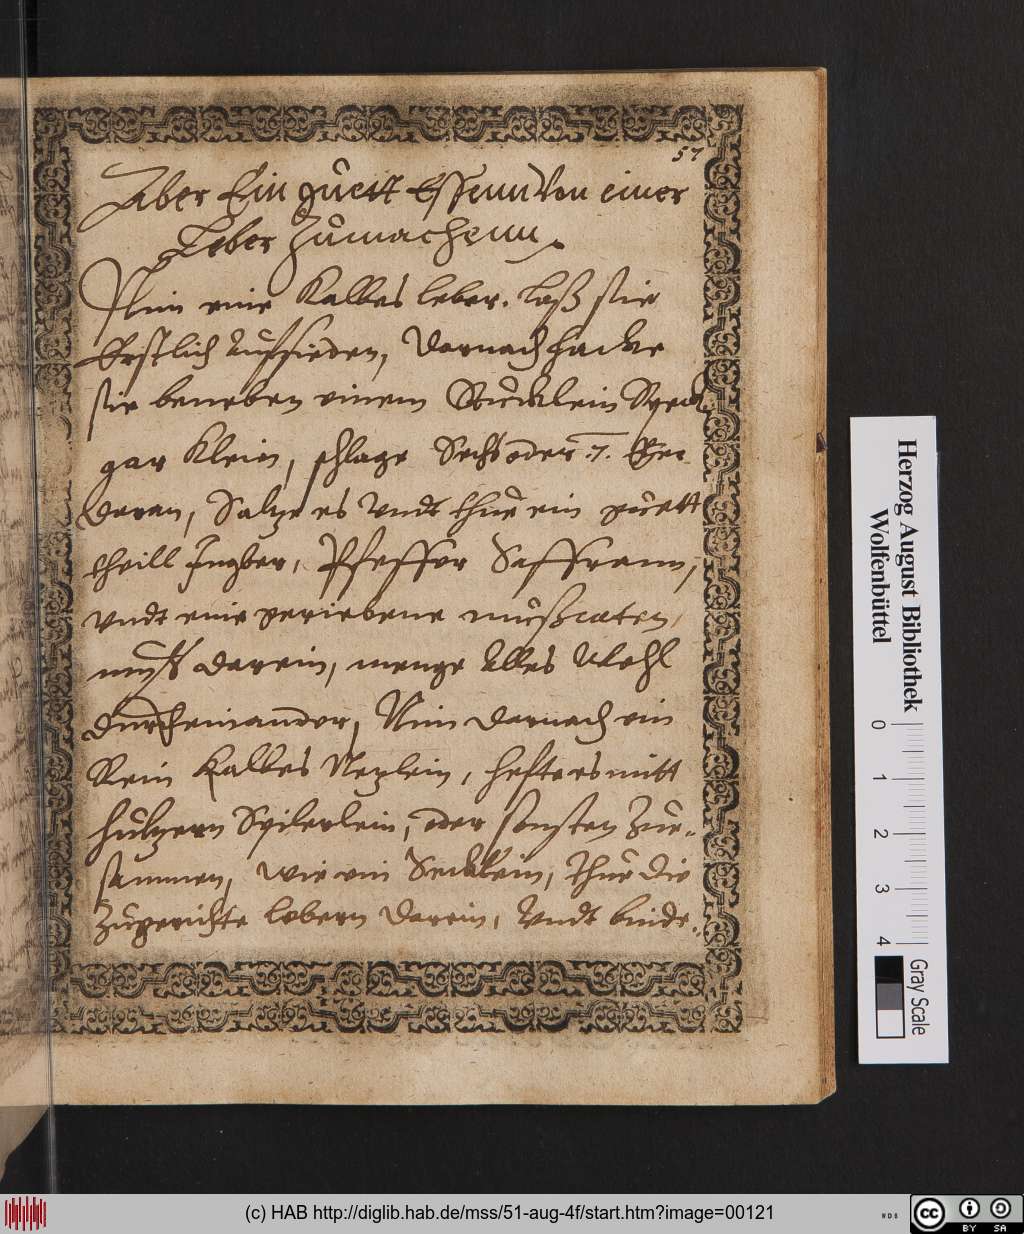 57
Aber Ein guett Essenn Von einer
Leber Zumachenn.
Nim eine Kalbes leber. laß sie
Erstlich Auffsieden, Darnach hacke
sie beneben einem Stücklein Speck
gar Klein, schlage Sechs oder .7. Eier
daran, Saltze es Undt thue ein guett
theill Ingber, Pfeffer Saffrann,
Undt eine geriebene mußcaten,
nuß darein, menge Alles Wohl
durcheinander, Nim darnach ein
Rein Kalbes Nezlein, heffte es mitt
hültzern Speilerlein, oder sonsten Zue-
sammen, wie ein Secklein, Thue die
Zugerichte lebern darein, Undt binde.
Herzog August Bibliothek
Wolfenbüttel
0 1 2 3 4
Gray Scale
(c) HAB http://diglib.hab.de/mss/51-aug-4f/start.htm?image=00121
WDB
cc
BY SA